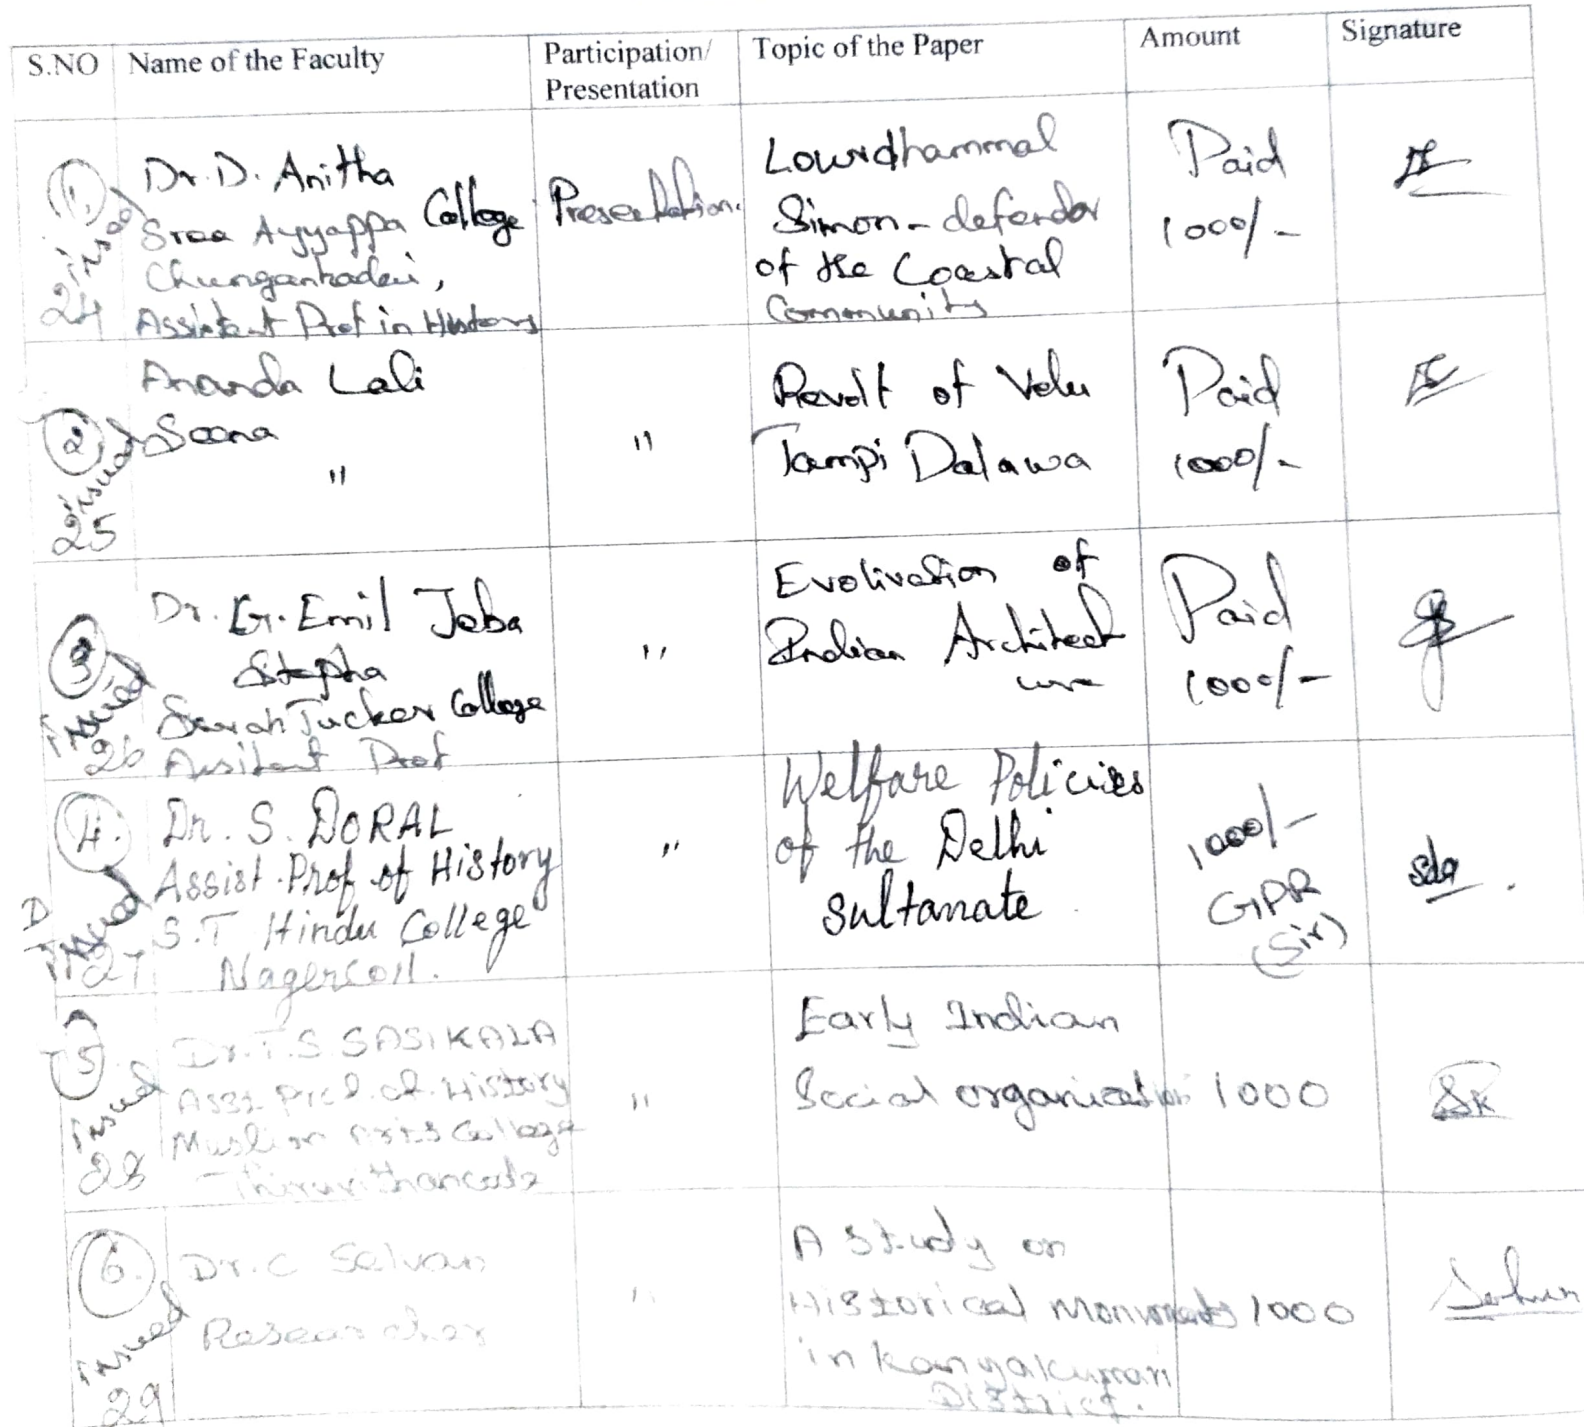 S.NO Name of the Faculty Participation/ Presentation Topic of the Paper Amount Signature
1. issued 24
Dr. D. Anitha
Sree Ayyappa College
Chungankadai,
Assistant Prof in History
Presentation.
Lourdhammal
Simon - defender
of the Coastal
Community
Paid
1000/-
2 issued 25
Ananda Lali
Seena
"
"
Revolt of Velu
Tampi Dalawa
Paid
1000/-
3 issued 26
Dr. G. Emil Jeba
Stepha
Sarah Tucker College
Assitant Prof
"
Evolivation of
Indian Architect
ure
Paid
1000/-
4. issued 27
Dr. S. DORAL
Assist. Prof. of History
S.T Hindu College
Nagercoil.
"
Welfare Policies
of the Delhi
Sultanate
1000/-
GPR
(Sir)
5 issued 28
Dr. T. S. SASIKALA
Asst. Prof. of. History
Muslim Arts College
Thiruvithancode
"
Early Indian
Social organization
1000
SK
6. issued 29
Dr. C Selvan
Researcher
"
A Study on
Historical monuments
in Kanyakumari
District.
1000